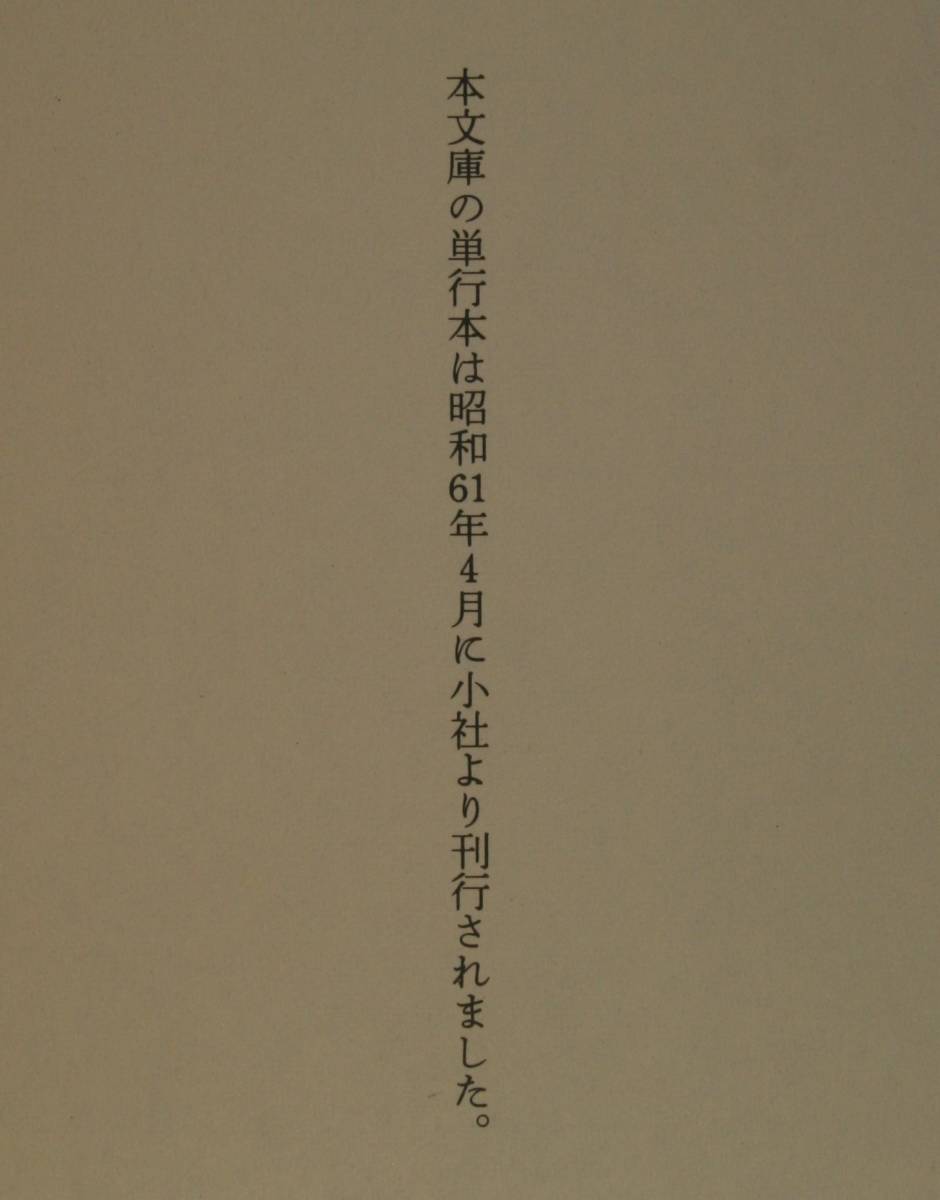 本文庫の単行本は昭和61年4月に小社より刊行されました。